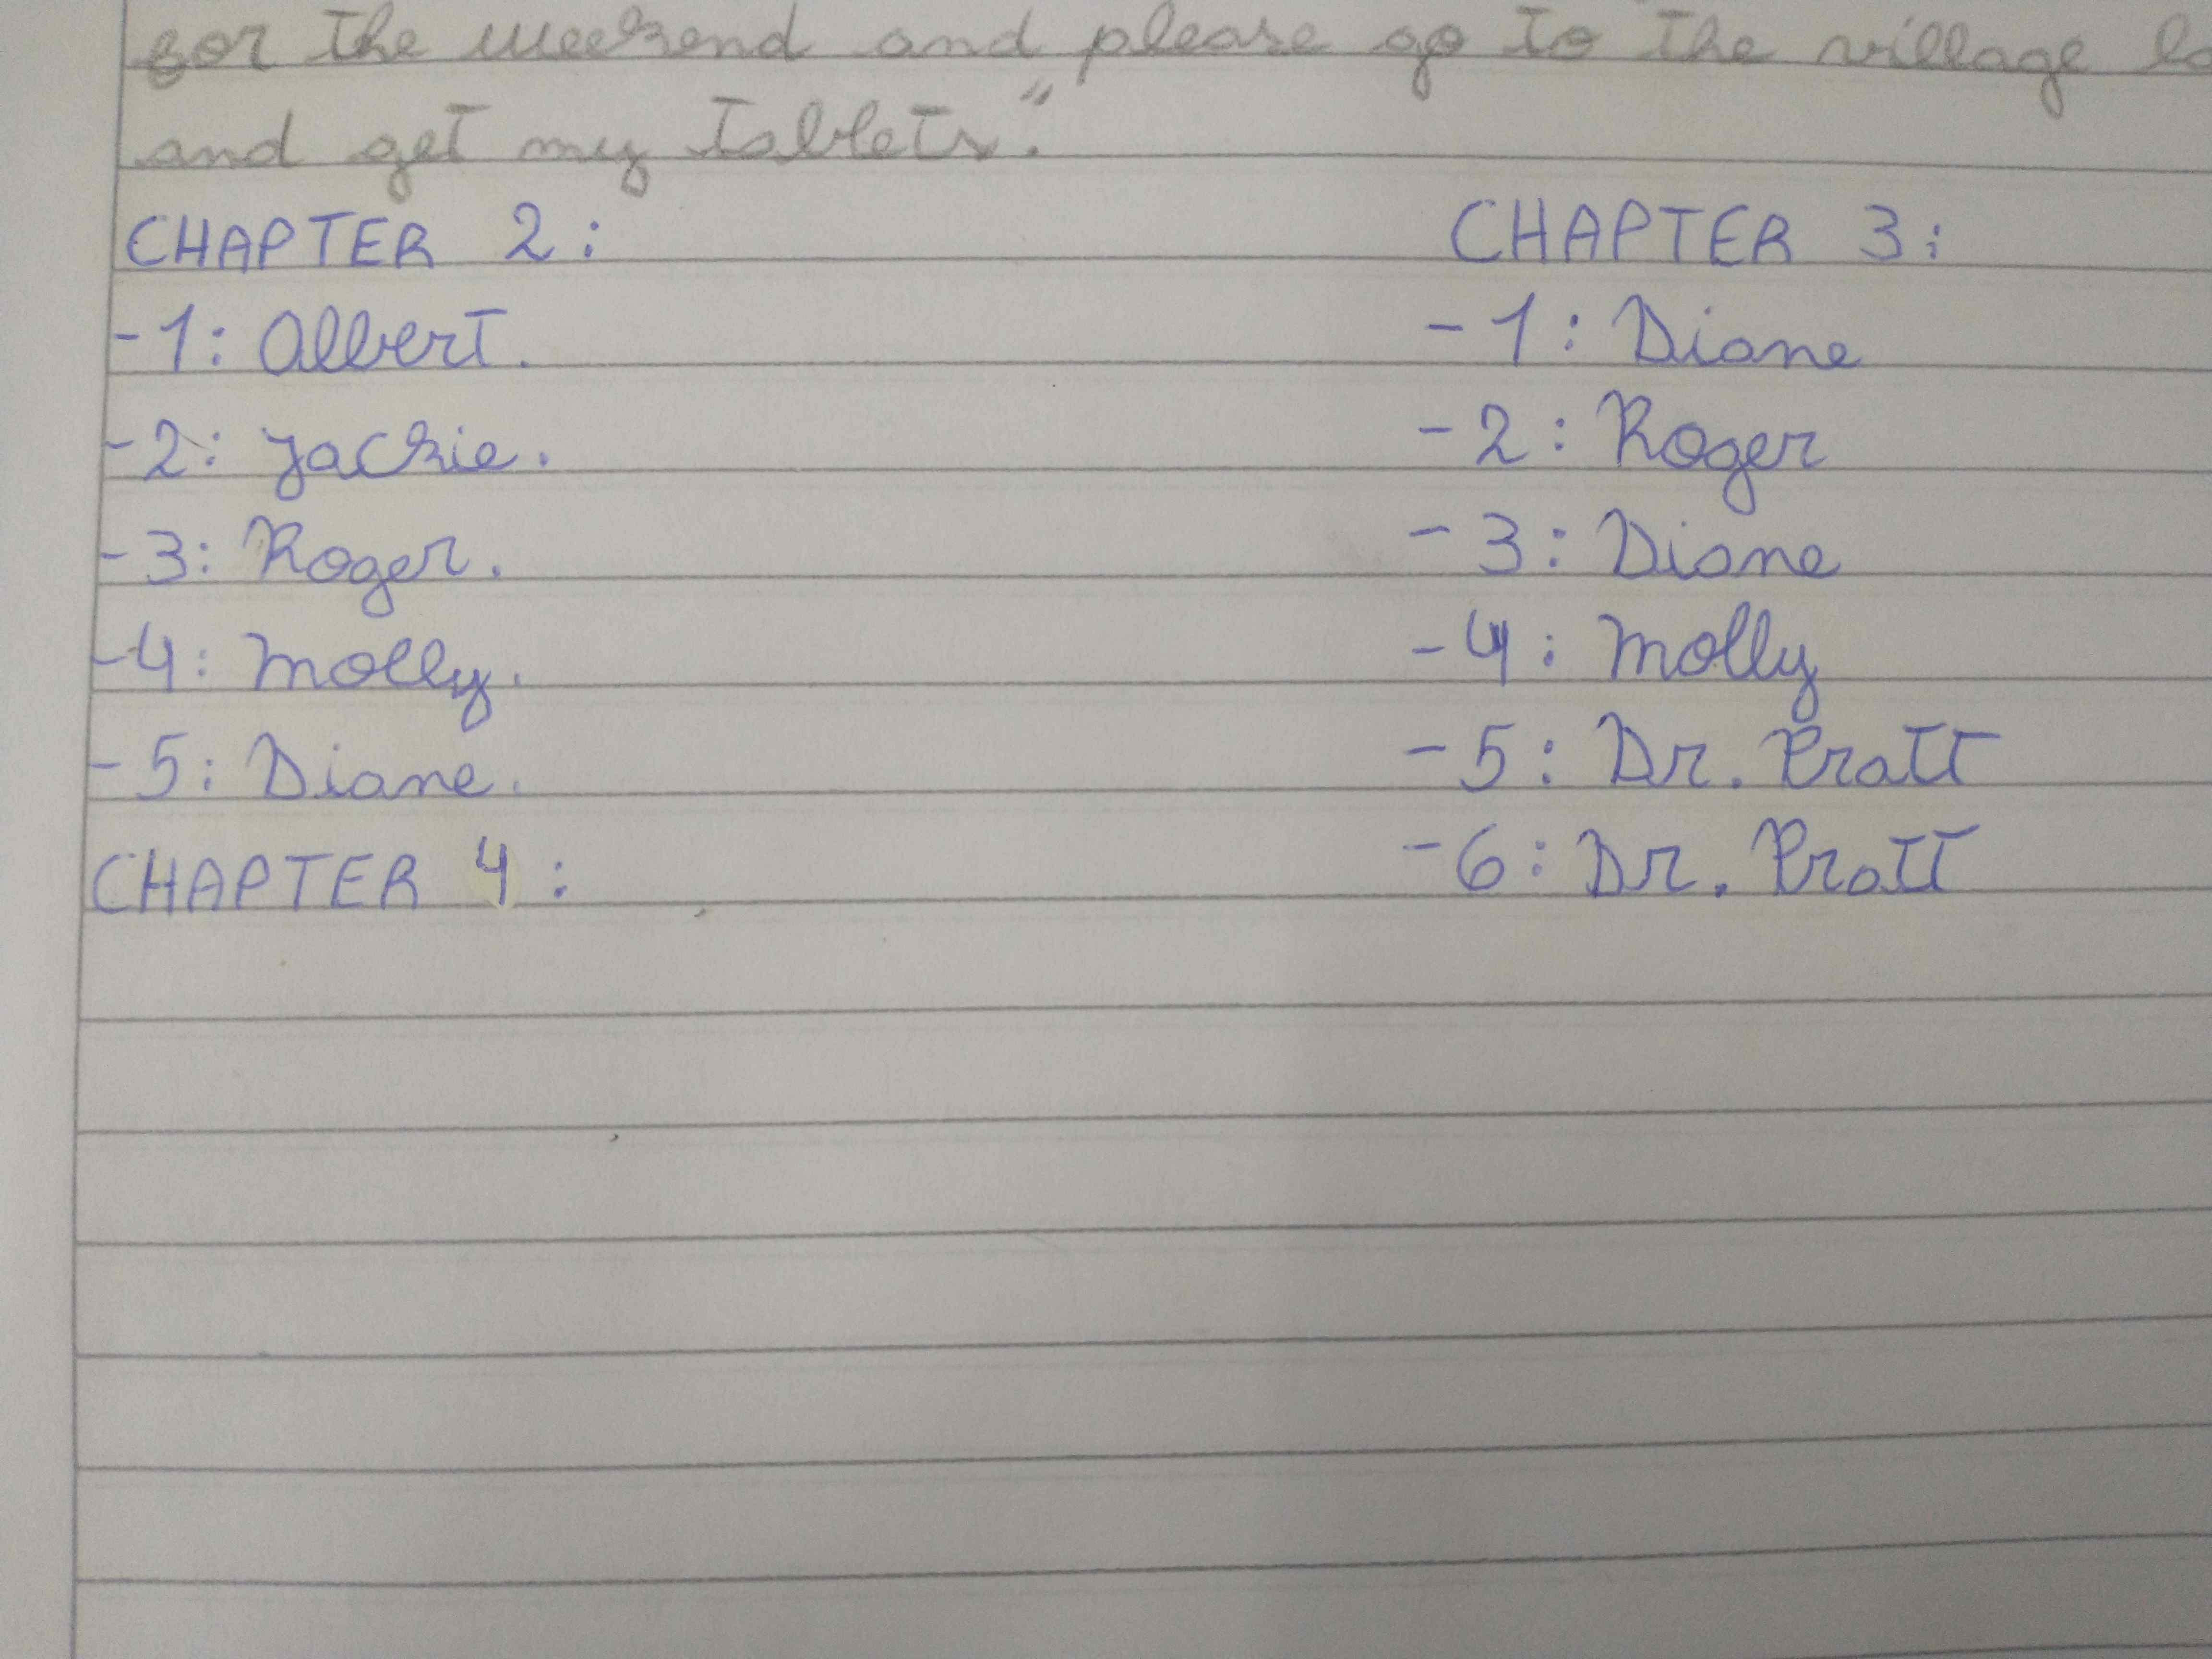 for the weekend and please go to the village
and get my tablets."
CHAPTER 2:
-1: Albert.
-2: Jackie.
-3: Roger.
-4: Molly.
-5: Diane.
CHAPTER 3:
-1: Diane
-2: Roger
-3: Diane
-4: Molly
-5: Dr. Pratt
-6: Dr. Pratt
CHAPTER 4: